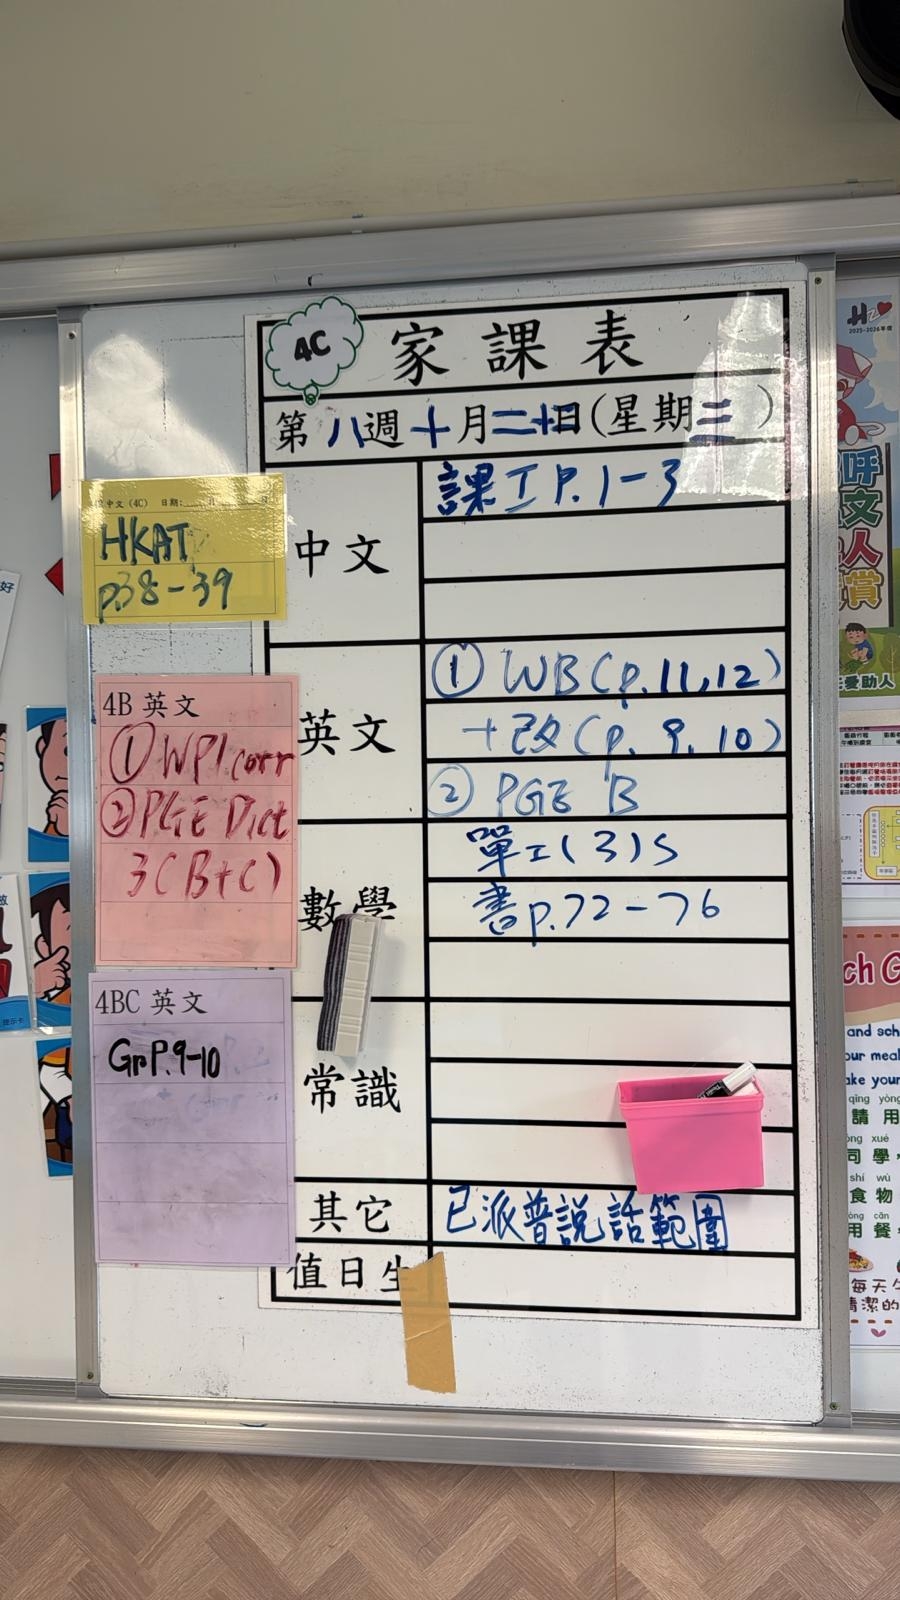 4C
家課表
第八週十月二十日(星期三)
中文
課工P.1-3
中文(4C) 日期:
HKAT
p.38-39
英文
① WB(p.11,12)
+改(p.9,10)
② PGE B
4B 英文
①WP1 corr
②PGE Dict
3(B+C)
數學
單工(3)S
書p.72-76
4BC 英文
Gr P.9-10
常識
其它
已派普說話範圍
值日生
2025-2026年度
呼
文
人
賞
愛助人
ch G
and sch
our meal
ake your
qǐng yòng
請用
xué
司學
shí wù
食物
cān
用餐
每天
清潔的
提示卡
好